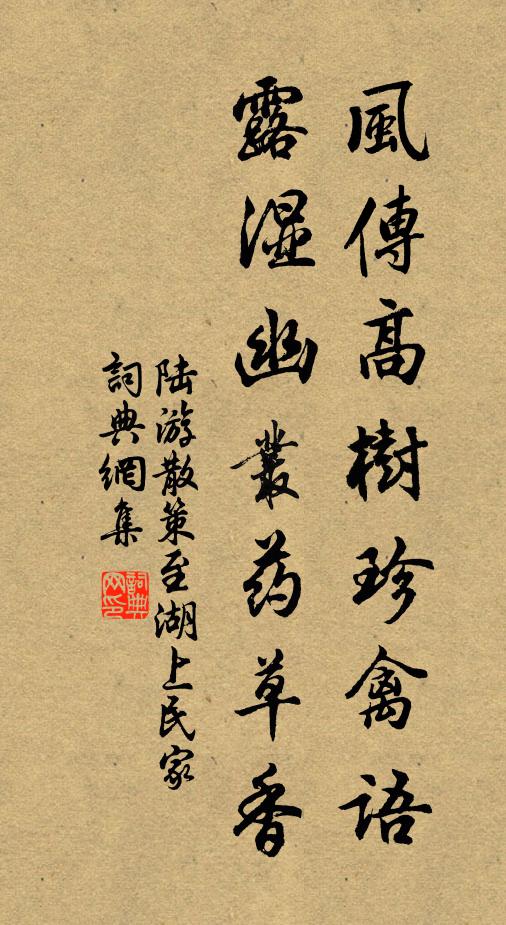 風傳高樹珍禽語
露溼幽叢药草香
陆游散策至湖上民家
詞典網集
詞典
网印